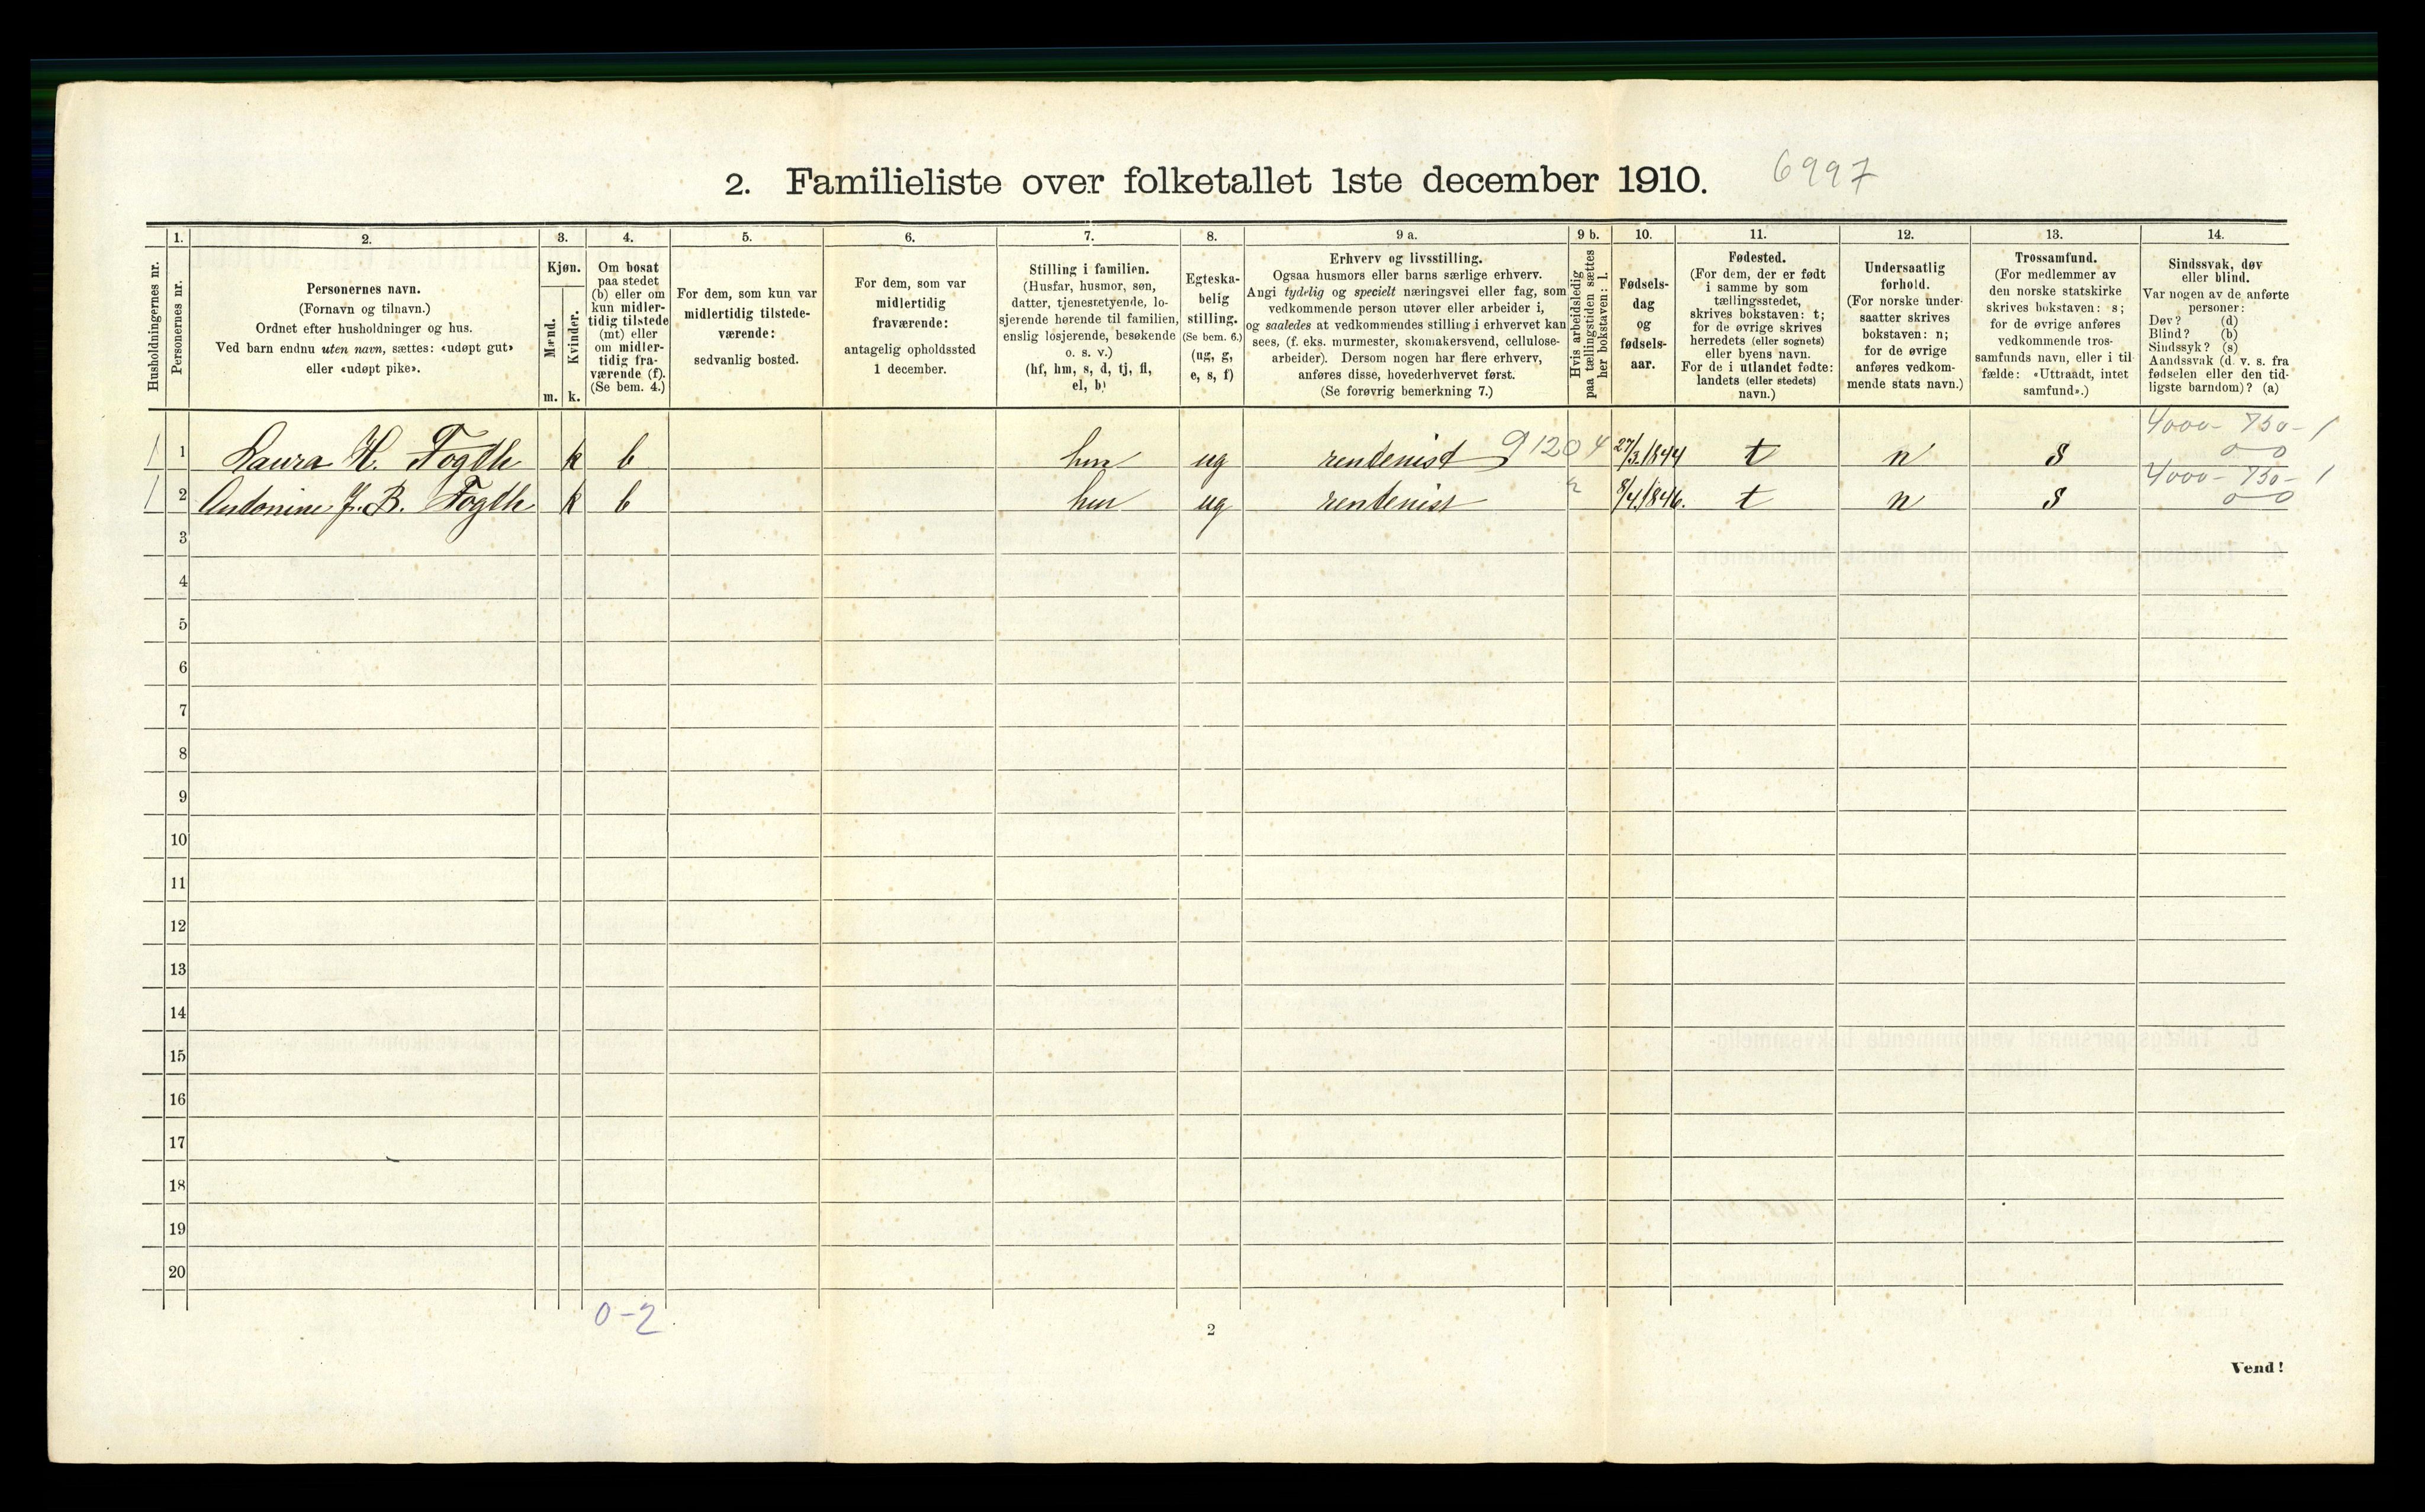 2. Familieliste over folketallet 1ste december 1910. 6997
Husholdningernes nr.
1.
Personernes nr.
2.
Personernes navn.
(Fornavn og tilnavn.)
Ordnet efter husholdninger og hus.
Ved barn endnu uten navn, sættes: «udøpt gut»
eller «udøpt pike».
3.
Kjøn.
Mænd.
Kvinder.
m. k.
4.
Om bosat
paa stedet
(b) eller om
kun midler-
tidig tilstede
(mt) eller
om midler-
tidig fra-
værende (f).
(Se bem. 4.)
5.
For dem, som kun var
midlertidig tilstede-
værende:
sedvanlig bosted.
6.
For dem, som var
midlertidig
fraværende:
antagelig opholdssted
1 december.
7.
Stilling i familien.
(Husfar, husmor, søn,
datter, tjenestetyende, lo-
sjerende hørende til familien,
enslig losjerende, besøkende
o. s. v.)
(hf, hm, s, d, tj, fl,
el, b)
8.
Egteska-
belig
stilling.
(Se bem. 6.)
(ug, g,
e, s, f)
9 a.
Erhverv og livsstilling.
Ogsaa husmors eller barns særlige erhverv.
Angi tydelig og specielt næringsvei eller fag, som
vedkommende person utøver eller arbeider i,
og saaledes at vedkommendes stilling i erhvervet kan
sees, (f. eks. murmester, skomakersvend, cellulose-
arbeider). Dersom nogen har flere erhverv,
anføres disse, hovederhvervet først.
(Se forøvrig bemerkning 7.)
9 b.
Hvis arbeidsledig
paa tællingstiden sættes
her bokstaven: l.
10.
Fødsels-
dag
og
fødsels-
aar.
11.
Fødested.
(For dem, der er født
i samme by som
tællingsstedet,
skrives bokstaven: t;
for de øvrige skrives
herredets (eller sognets)
eller byens navn.
For de i utlandet fødte:
landets (eller stedets)
navn.)
12.
Undersaatlig
forhold.
(For norske under-
saatter skrives
bokstaven: n;
for de øvrige
anføres vedkom-
mende stats navn.)
13.
Trossamfund.
(For medlemmer av
den norske statskirke
skrives bokstaven: s;
for de øvrige anføres
vedkommende tros-
samfunds navn, eller i til-
fælde: «Uttraadt, intet
samfund».)
14.
Sindssvak, døv
eller blind.
Var nogen av de anførte
personer:
Døv? (d)
Blind? (b)
Sindssyk? (s)
Aandssvak (d. v. s. fra
fødselen eller den tid-
ligste barndom)? (a)
1 1 Laura H. Fogth k b hm ug rentenist 9120 4 27/3.1844 t n s 4000- 750- 1 0-0
1 2 Antonine J. B. Fogth k b hm ug rentenist 2 8/4.1846. t n s 4000- 750- 1 0-0
3
4
5
6
7
8
9
10
11
12
13
14
15
16
17
18
19
20
0-2
2
Vend!